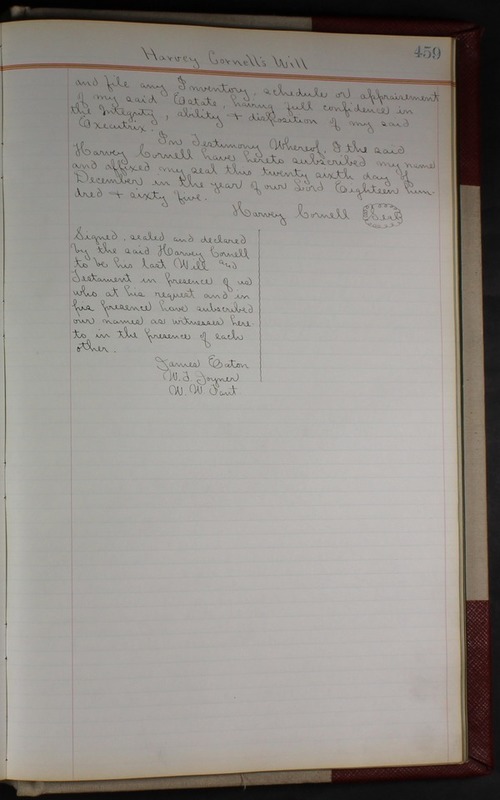 459
Harvey Cornell's Will
and file any Inventory, schedule or appraisement
of my said Estate, having full confidence in
the Integrity, ability & disposition of my said
Executrix.
In Testimony Whereof, I the said
Harvey Cornell have hereto subscribed my name
and affixed my seal this twenty sixth day of
December in the year of our Lord Eighteen hun-
dred & sixty five.
Harvey Cornell Seal
Signed, sealed and declared
by the said Harvey Cornell
to be his last Will and
Testament in presence of us
who at his request and in
his presence have subscribed
our names as witnesses here
to in the presence of each
other.
James Eaton
W. T. Joyner
W. W.